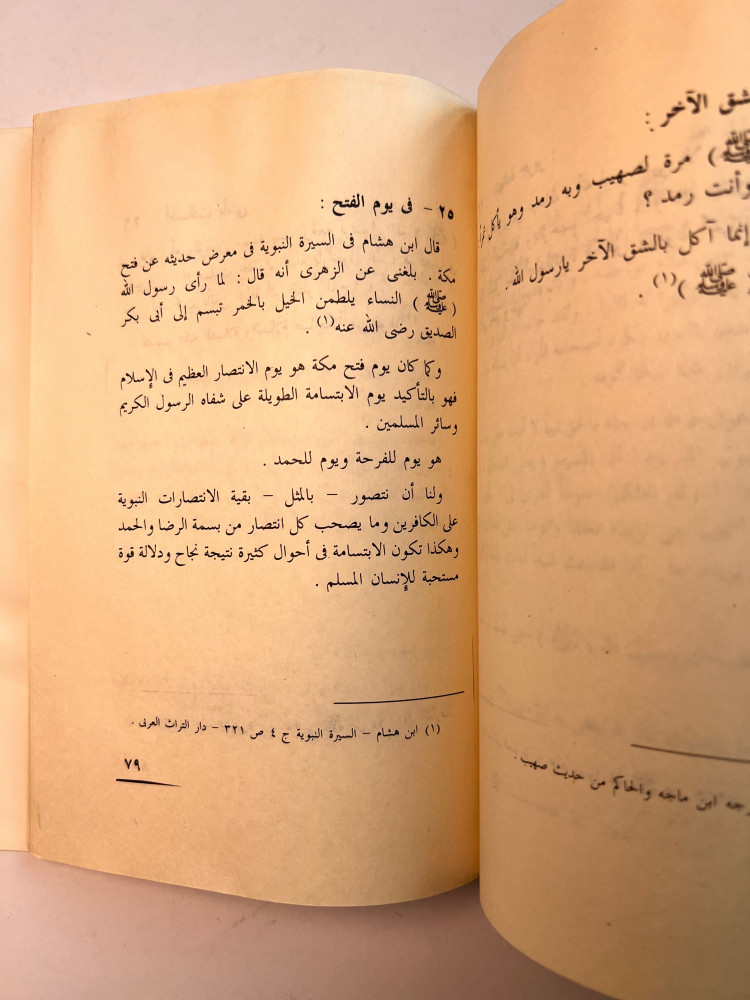 ٢٥ – فى يوم الفتح :
قال ابن هشام فى السيرة النبوية فى معرض حديثه عن فتح
مكة . بلغنى عن الزهرى أنه قال : لما رأى رسول الله
(ﷺ) النساء يلطمن الخيل بالخمر تبسم إلى أبى بكر
الصديق رضى الله عنه(١) .
وكما كان يوم فتح مكة هو يوم الانتصار العظيم فى الإسلام
فهو بالتأكيد يوم الابتسامة الطويلة على شفاه الرسول الكريم
وسائر المسلمين .
هو يوم للفرحة ويوم للحمد .
ولنا أن نتصور – بالمثل – بقية الانتصارات النبوية
على الكافرين وما يصحب كل انتصار من بسمة الرضا والحمد
وهكذا تكون الابتسامة فى أحوال كثيرة نتيجة نجاح ودلالة قوة
مستحبة للإنسان المسلم .
(١) ابن هشام – السيرة النبوية ج ٤ ص ٣٢١ – دار التراث العربى .
٧٩
الآخر :
ﷺ) مرة لصهيب وبه رمد وهو يأكل
وأنت رمد ؟
إنما آكل بالشق الآخر يارسول الله .
ﷺ )(١) .
ابن ماجه والحاكم من حديث صهيب .